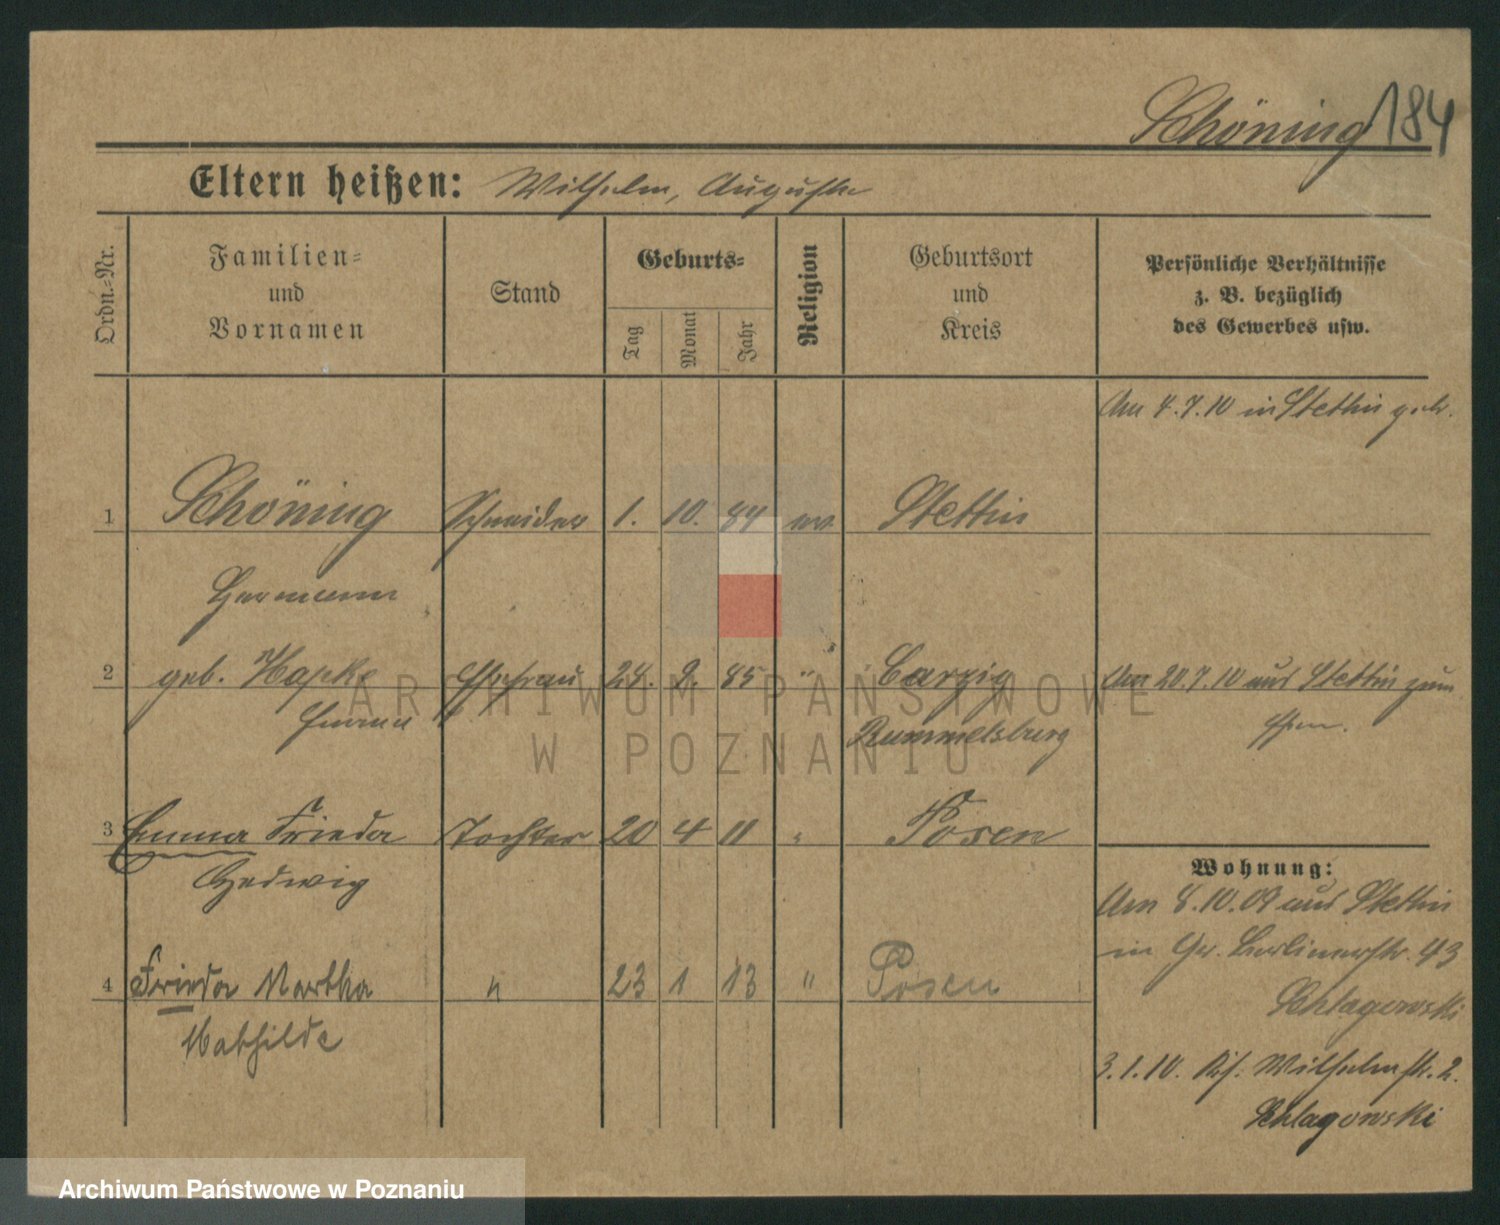 Schöning 184
Eltern heißen: Wilhelm, Auguste
Ordn.-Nr.
Familien-
und
Vornamen
Stand
Geburts-
Tag
Monat
Jahr
Religion
Geburtsort
und
Kreis
Persönliche Verhältnisse
z. B. bezüglich
des Gewerbes usw.
Am 4.7.10 in Stettin geh.
1 Schöning Schneider 1. 10. 84 ev. Stettin
Hermann
2 geb. Hapke Ehefrau 24. 2. 85 " Carzig Am 20.7.10 aus Stettin zum
Emma Rummelsburg Ehem.
3 Emma Frieda Tochter 20 4 11 " Posen
Hedwig
Wohnung:
Am 8.10.09 aus Stettin
in Gr. Berlinerstr. 43
4 Frieda Martha " 23 1 13 " Posen
Schlagowski
Mathilde
3.1.10. Wilhelmstr. 2.
Schlagowski
ARCHIWUM PAŃSTWOWE
W POZNANIU
Archiwum Państwowe w Poznaniu